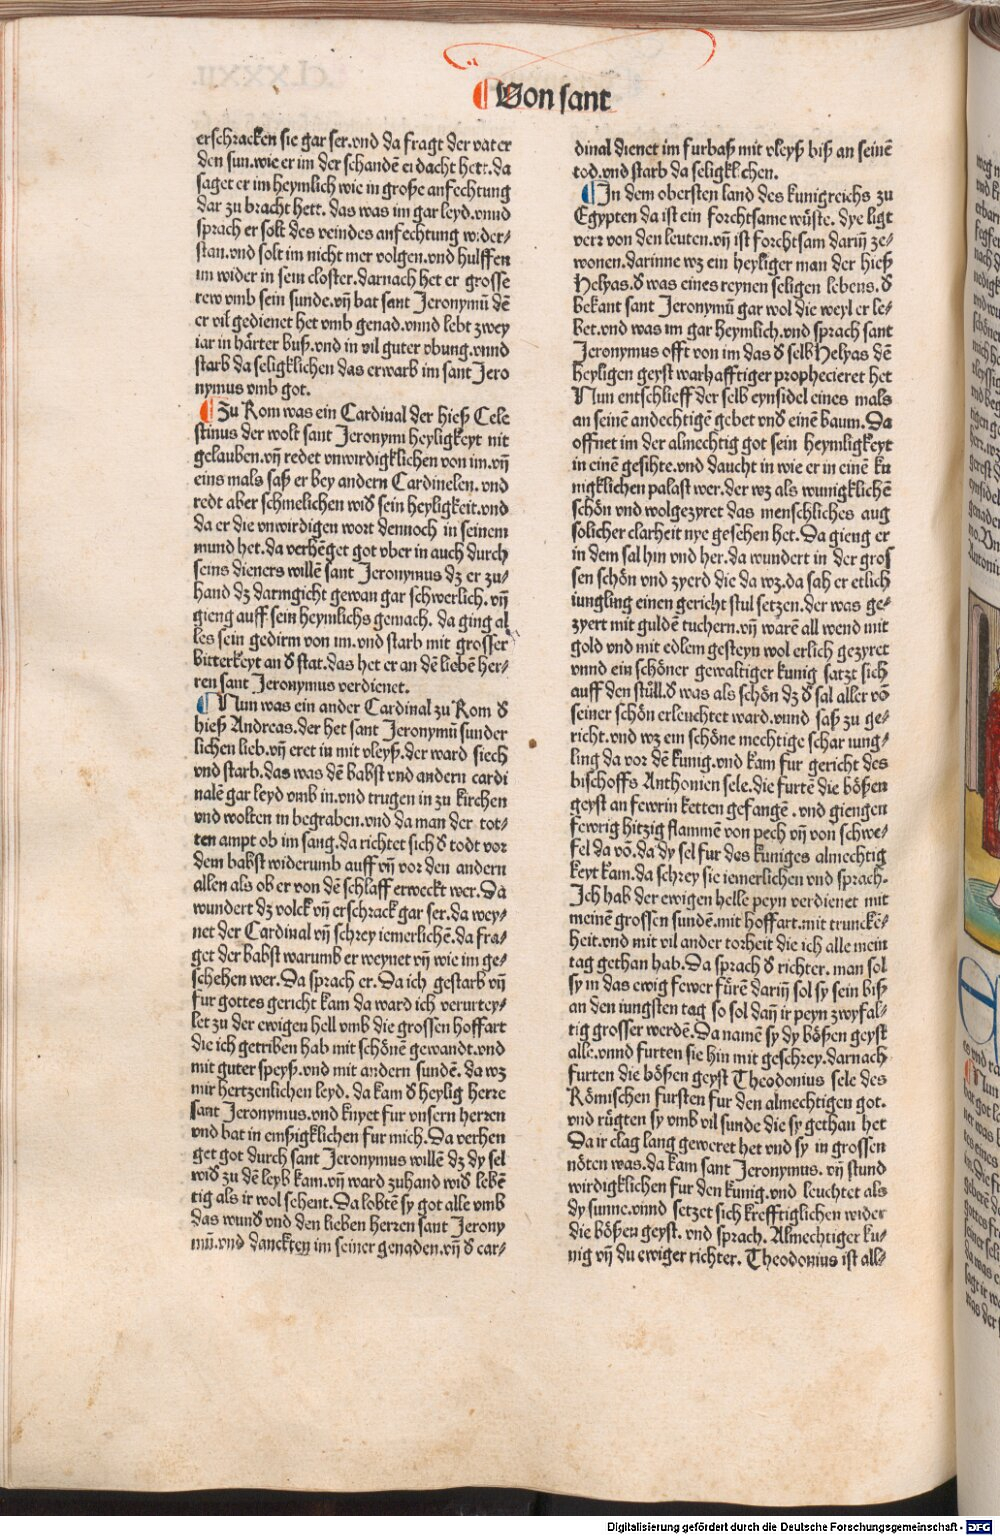 ¶ Von sant
erschracken sie gar ser.vnd da fragt der vater
den sun.wie er im der schandē erdacht hett.da
saget er im heymlich wie in große anfechtung
dar zu bracht hett. das was im gar leyd.vnnd
sprach er solt des veindes anfechtung wider⸗
stan.vnd solt im nicht mer volgen.vnd hulffen
im wider in sein closter.darnach het er grosse
rew vmb sein sunde.vñ bat sant Jeronymū dē
er vil gedienet het vmb genad.vnnd lebt zwey
iar in härter buß.vnd in vil guter vbung.vnnd
starb da seligklichen das erwarb im sant Jero
nymus vmb got.
¶ Zu Rom was ein Cardinal der hieß Cele
stinus der wolt sant Jeronymi heyligkeyt nit
gelauben.vñ redet vnwirdigklichen von im.vñ
eins mals saß er bey andern Cardinelen. vnd
redt aber schmelichen wid̄ sein heyligkeit.vnd
da er die vnwirdigen wort dennoch in seinem
mund het.da verhēget got vber in auch durch
seins dieners willē sant Jeronymus dz er zu⸗
hand dz darmgicht gewan gar schwerlich. vñ
gieng auff sein heymlichs gemach. da ging al
les sein gedirm von im.vnd starb mit grosser
bitterkeyt an d̄ stat.das het er an dē liebē her⸗
ren sant Jeronymus verdienet.
¶ Nun was ein ander Cardinal zu Rom d̄
hieß Andreas.der het sant Jeronymū sunder
lichen lieb.vñ eret in mit vleyß.der ward siech
vnd starb.das was dē babst vnd andern cardi
nalē gar leyd vmb in.vnd trugen in zu kirchen
vnd wolten in begraben.vnd da man der tot⸗
ten ampt ob im sang.da richtet sich d̄ todt vor
dem babst widerumb auff vñ vor den andern
allen als ob er von dē schlaff erweckt wer.Da
wundert dz volck vñ erschrack gar ser.da wey⸗
net der Cardinal vñ schrey iemerlichē.da fra⸗
get der babst warumb er weynet vñ wie im ge⸗
schehen wer.Da sprach er.Da ich gestarb vñ
fur gottes gericht kam da ward ich verurtey⸗
let zu der ewigen hell vmb die grossen hoffart
die ich getriben hab mit schönē gewandt.vnd
mit guter speyß.vnd mit andern sundē. da wz
mir hertzenlichen leyd. da kam d̄ heylig herre
sant Jeronymus.vnd knyet fur vnsern herren
vnd bat in emßigklichen fur mich.Da verhen
get got durch sant Jeronymus willē dz dy sel
wid̄ zu dē leyb kam.vñ ward zuhand wid̄ lebē
tig als ir wol sehent.Da lobtē sy got alle vmb
das wund̄ vnd den lieben herren sant Jerony
mū.vnd danckten im seiner genaden.vñ d̄ car⸗
dinal dienet im furbaß mit vleyß biß an seinē
tod.vnd starb da seligklichen.
¶ In dem obersten land des kunigreichs zu
Egypten da ist ein forchtsame wüste. dye ligt
verr von den leuten.vñ ist forchtsam dariñ ze⸗
wonen.darinne wz ein heyliger man der hieß
Helyas.d̄ was eines reynen seligen lebens. d̄
bekant sant Jeronymū gar wol die weyl er le⸗
bet.vnd was im gar heymlich.vnd sprach sant
Jeronymus offt von im das d̄ selb Helyas dē
heyligen geyst warhafftiger prophecieret het
Nun entschlieff der selb eynsidel eines mals
an seinē andechtigē gebet vnd̄ einē baum. Da
offnet im der almechtig got sein heymligkeyt
in einē gesihte.vnd daucht in wie er in einē ku
nigklichen palast wer.der wz als wunigklichē
schön vnd wolgezyret das menschliches aug
solicher clarheit nye gesehen het.Da gieng er
in dem sal hin vnd her.da wundert in der gros
sen schön vnd zyerd die da wz.da sah er etlich
iungling einen gericht stul setzen.der was ge⸗
zyert mit guldē tuchern.vñ warē all wend mit
gold vnd mit edlem gesteyn wol erlich gezyret
vnnd ein schöner gewaltiger kunig satzt sich
auff den stůll.d̄ was als schön dz d̄ sal aller vō
seiner schön erleuchtet ward.vnnd saß zu ge⸗
richt.vnd wz ein schöne mechtige schar iung⸗
ling da vor dē kunig.vnd kam fur gericht des
bischoffs Anthonien sele.die furtē die bößen
geyst an fewrin ketten gefangē . vnd giengen
fewrig hitzig flammē von pech vñ von schwe⸗
fel da vō.da dy sel fur des kuniges almechtig
keyt kam.da schrey sie iemerlichen vnd sprach.
Ich hab der ewigen helle peyn verdienet mit
meinē grossen sundē.mit hoffart.mit trunckē⸗
heit.vnd mit vil ander torheit die ich alle mein
tag gethan hab.Da sprach d̄ richter. man sol
sy in das ewig fewer fürē dariñ sol sy sein biß
an den iungsten tag so sol dañ ir peyn zwyfal⸗
tig grosser werdē.Da namē sy dy bößen geyst
alle.vnnd furten sie hin mit geschrey.darnach
furten die bößen geyst Theodonius sele des
Römischen fursten fur den almechtigen got.
vnd rügten sy vmb vil sunde die sy gethan het
Da ir clag lang geweret het vnd sy in grossen
nöten was.da kam sant Jeronymus. vñ stund
wirdigklichen fur den kunig.vnd leuchtet als
dy sunne.vnnd setzet sich krefftiglichen wider
die bößen geyst. vnd sprach. Almechtiger ku⸗
nig vñ du ewiger richter. Theodonius ist all⸗
Digitalisierung gefördert durch die Deutsche Forschungsgemeinschaft - DFG